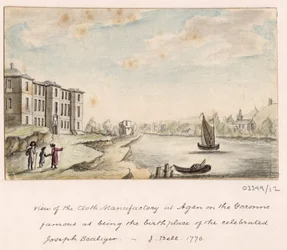 03349/12
View of the Cloth Manufactory at Agen on the Garonne
famous as being the birthplace of the celebrated
Joseph Scaliger. — J. Bell 1770.